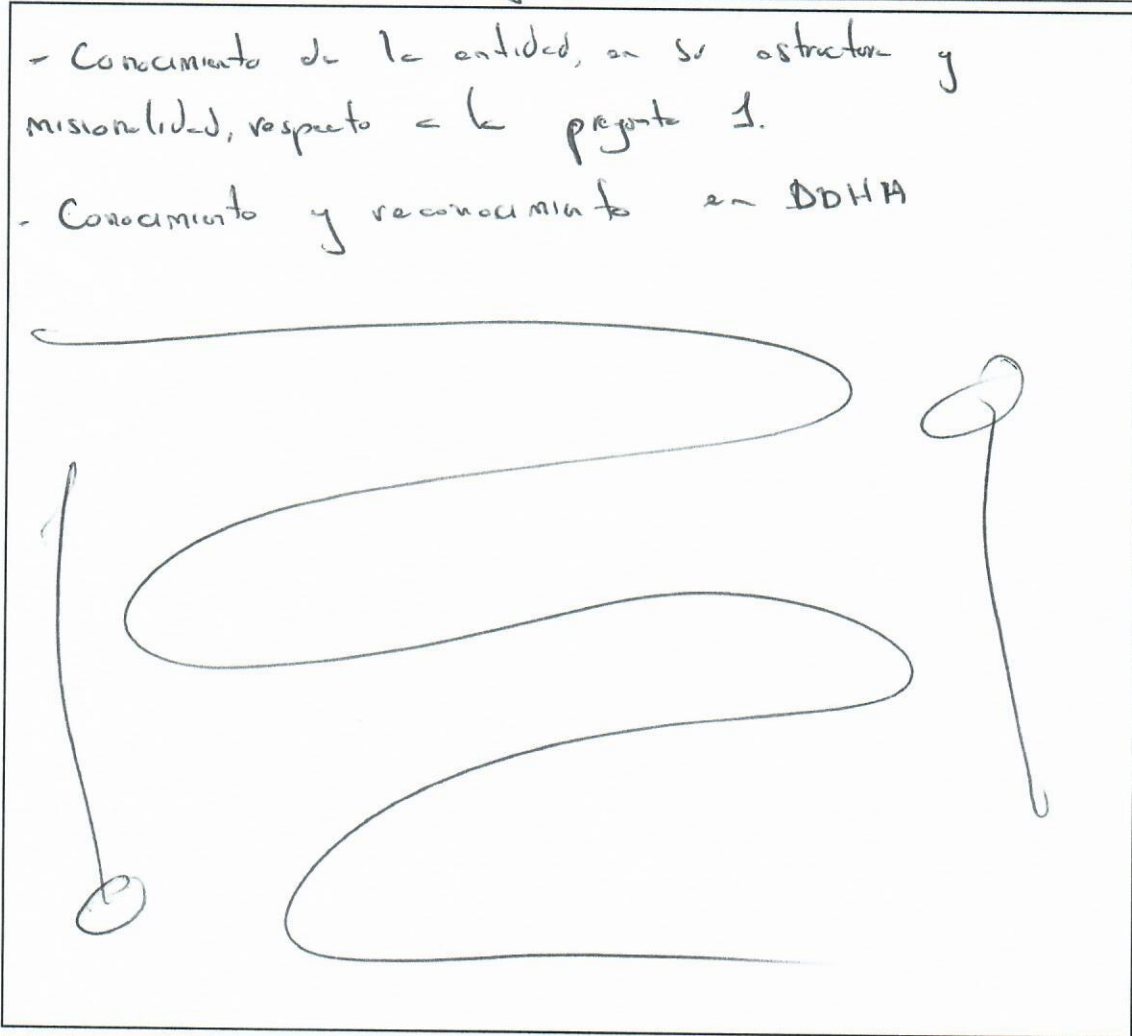 - Conocimiento de la entidad, en su estructura y
misionalidad, respecto a la pregunta 1.
- Conocimiento y reconocimiento en DDHH